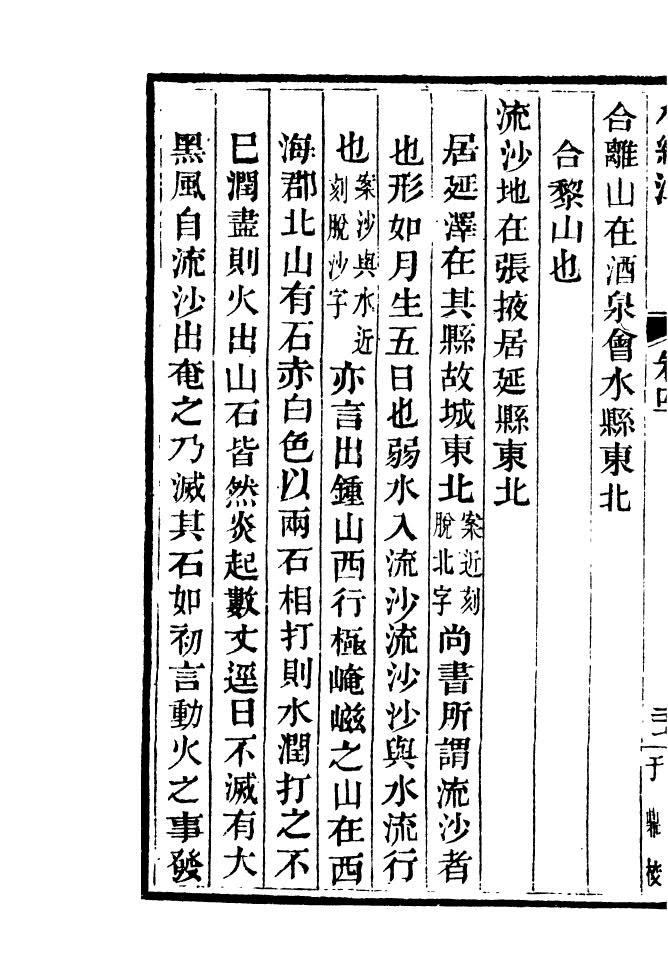 合離山在酒泉會水縣東北
合黎山也
流沙地在張掖居延縣東北
居延澤在其縣故城東北案近刻脫北字尚書所謂流沙者
也形如月生五日也弱水入流沙流沙沙與水流行
也案沙與水近刻脫沙字亦言出鍾山西行極崦嵫之山在西
海郡北山有石赤白色以兩石相打則水潤打之不
已潤盡則火出山石皆然炎起數丈逕日不滅有大
黑風自流沙出奄之乃滅其石如初言動火之事發